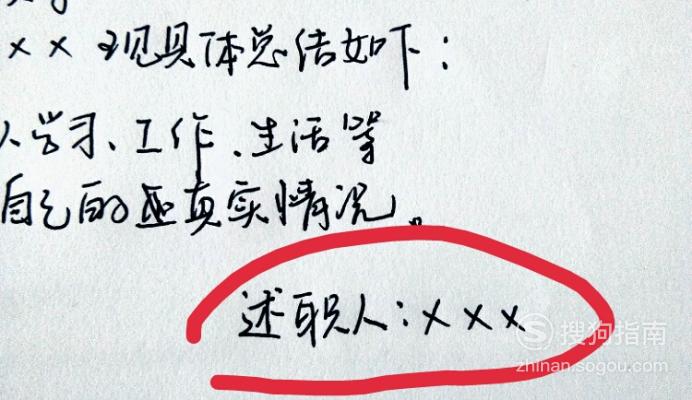 ×× 现具体总结如下：
人学习、工作、生活等
自己的真实情况。
述职人：×××
搜狗指南
zhinan.sogou.com